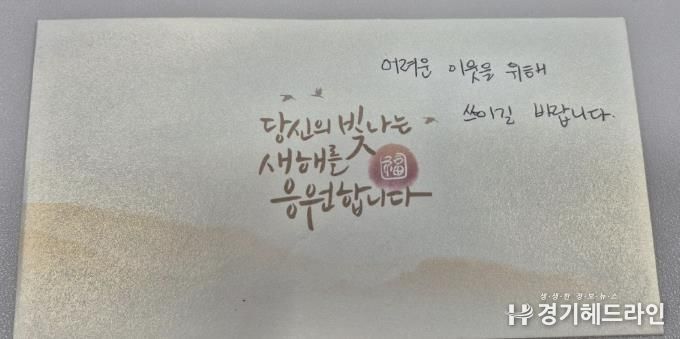 어려운 이웃을 위해
쓰이길 바랍니다.
당신의 빛나는
새해를 福
응원합니다
생생한 경보뉴스
경기헤드라인